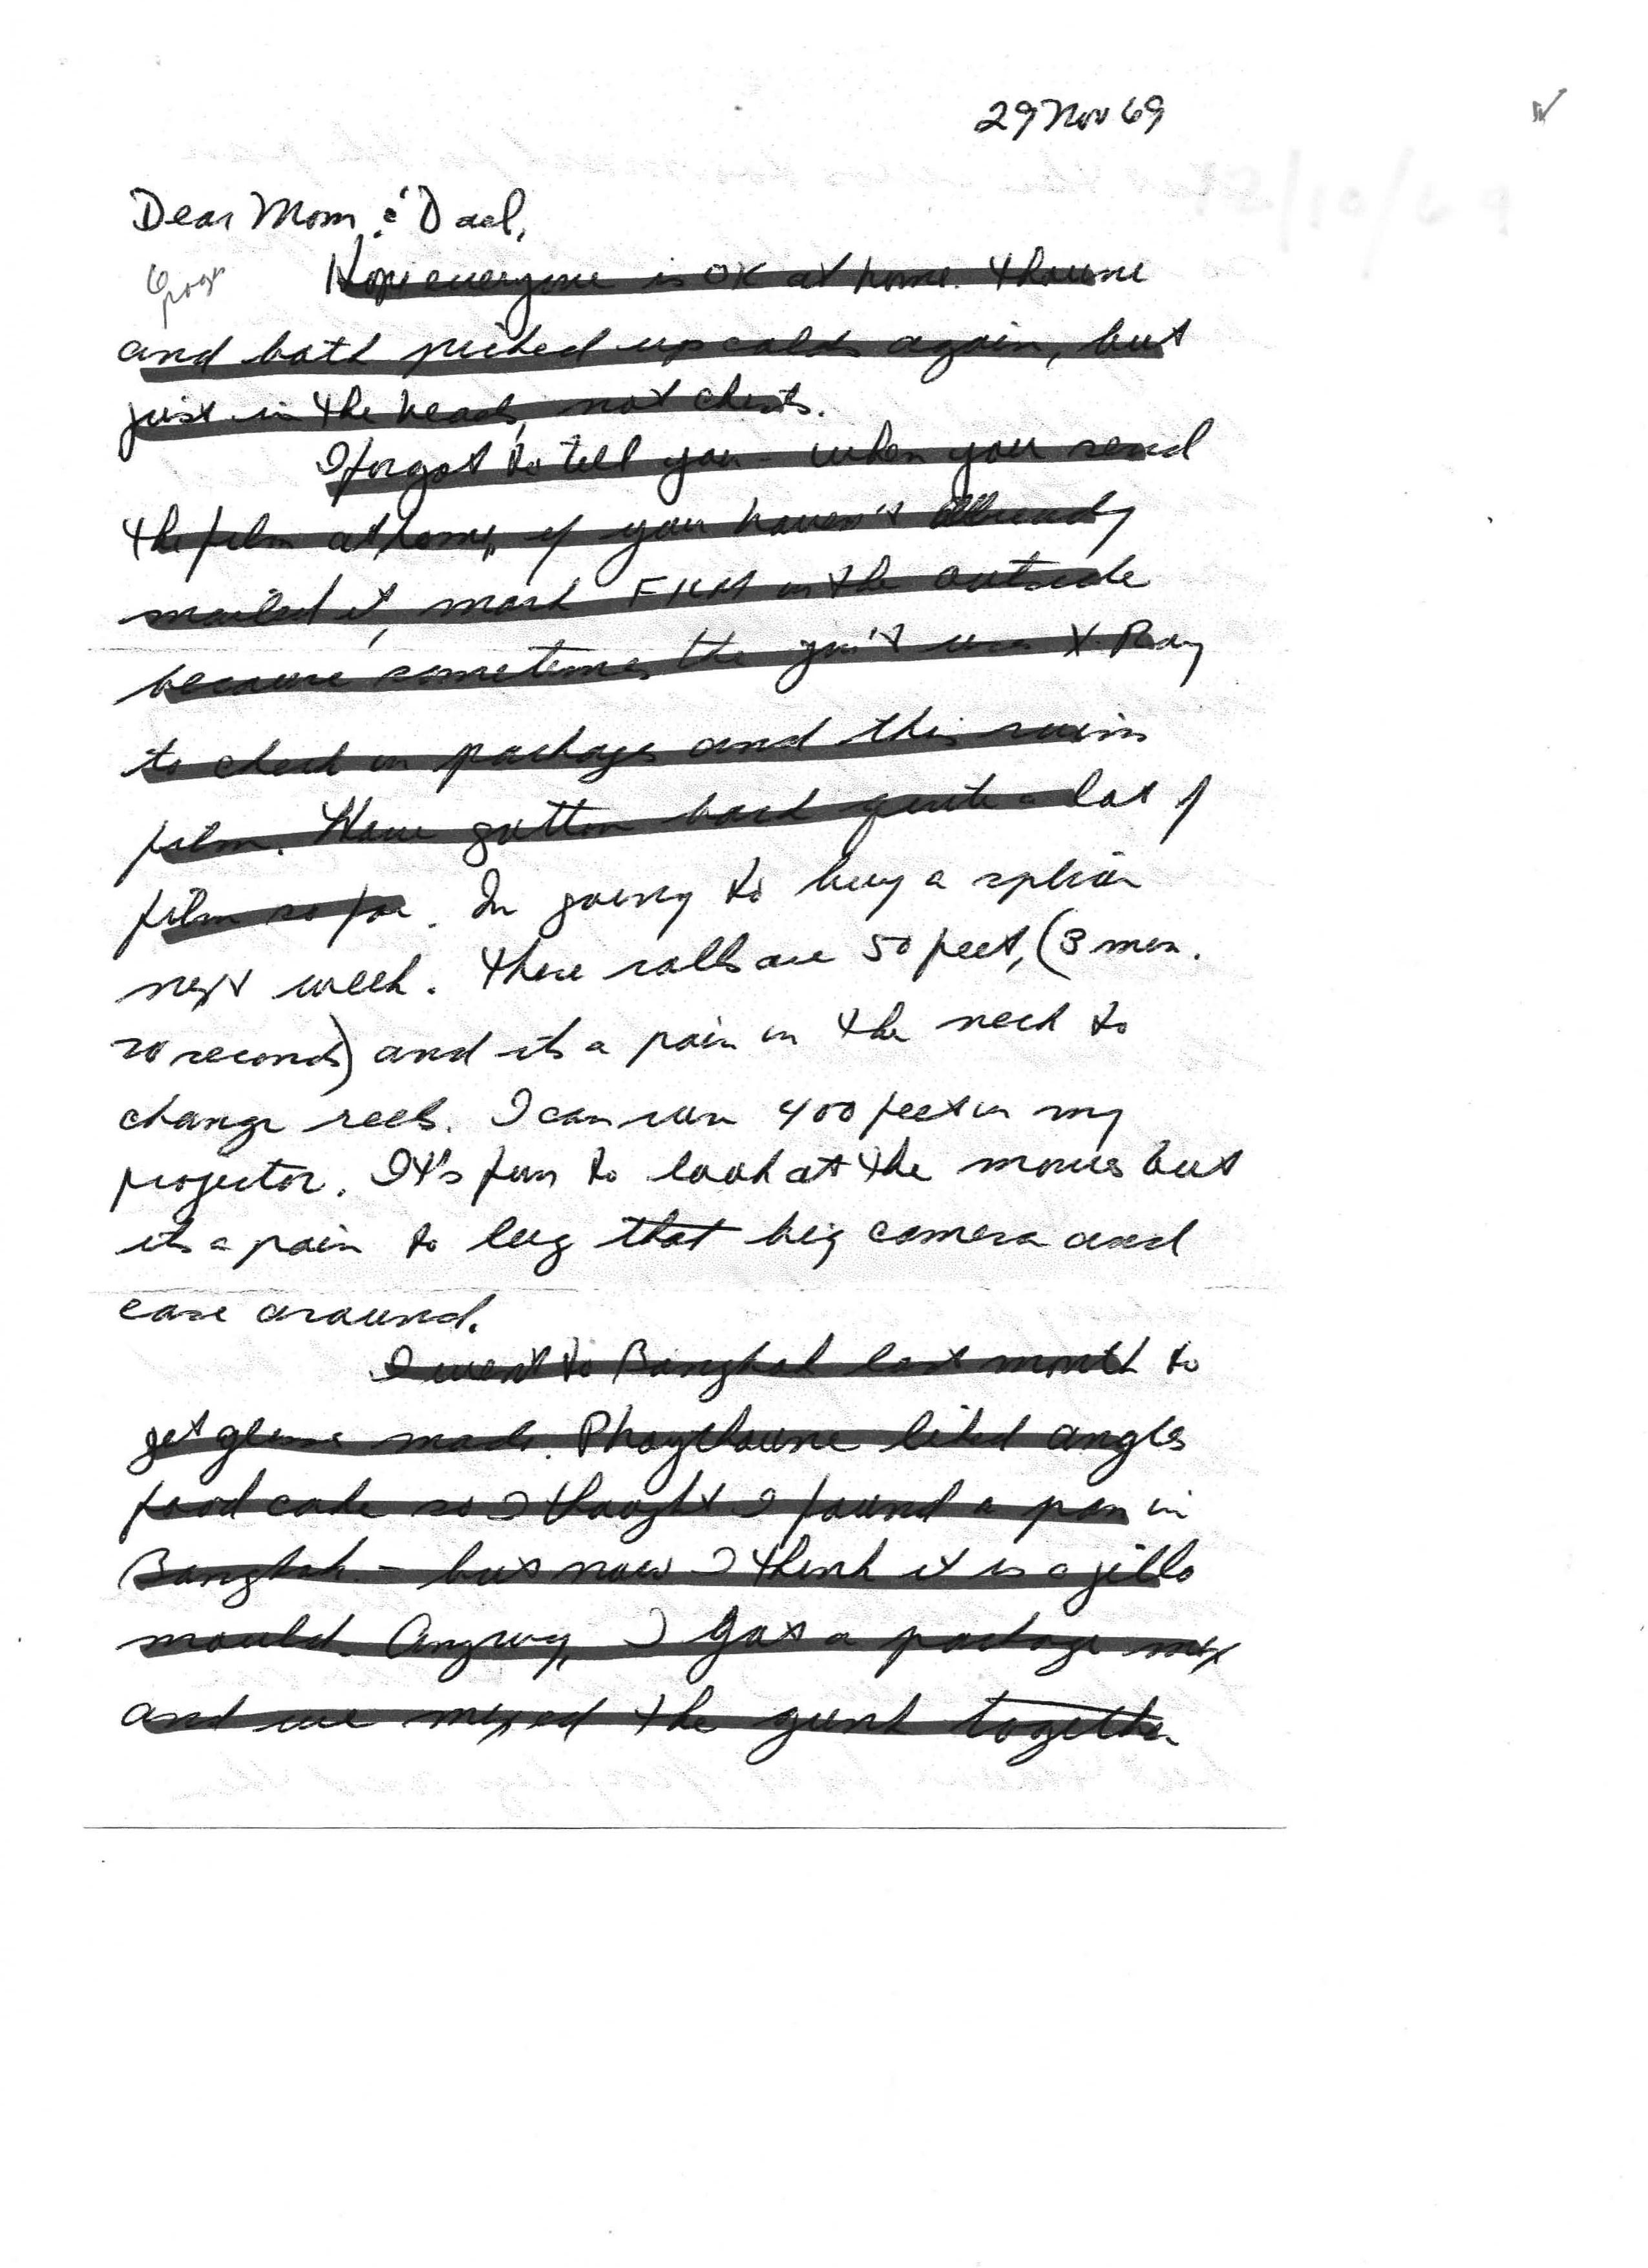 29 Nov 69
Dear Mom & Dad,
6 pgs
Hope everyone is OK at home. Thoune
and both picked up colds again, but
just in the heads, not chests.
I forgot to tell you - when you send
the film at home, if you haven't already
mailed it, mark FILM on the outside
because sometimes the gov't uses X-Ray
to check on packages and this ruins
film. Have gotten back quite a lot of
film so far. Im going to buy a splicer
next week. These rolls are 50 feet, (3 min.
20 seconds) and its a pain in the neck to
change reels. I can run 400 feet in my
projector. It's fun to look at the movies but
its a pain to lug that big camera and
case around.
I went to Bangkok last month to
get glasses made. Phaythoune liked angles
food cake so I thought I found a pan in
Bangkok - but now I think it is a jello
mould. Anyway, I got a package mix
and we mixed the gunk together